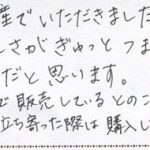 産でいただきました
しさがぎゅっとつま
だと思います。
で販売しているとのこ
立ち寄った際は購入し